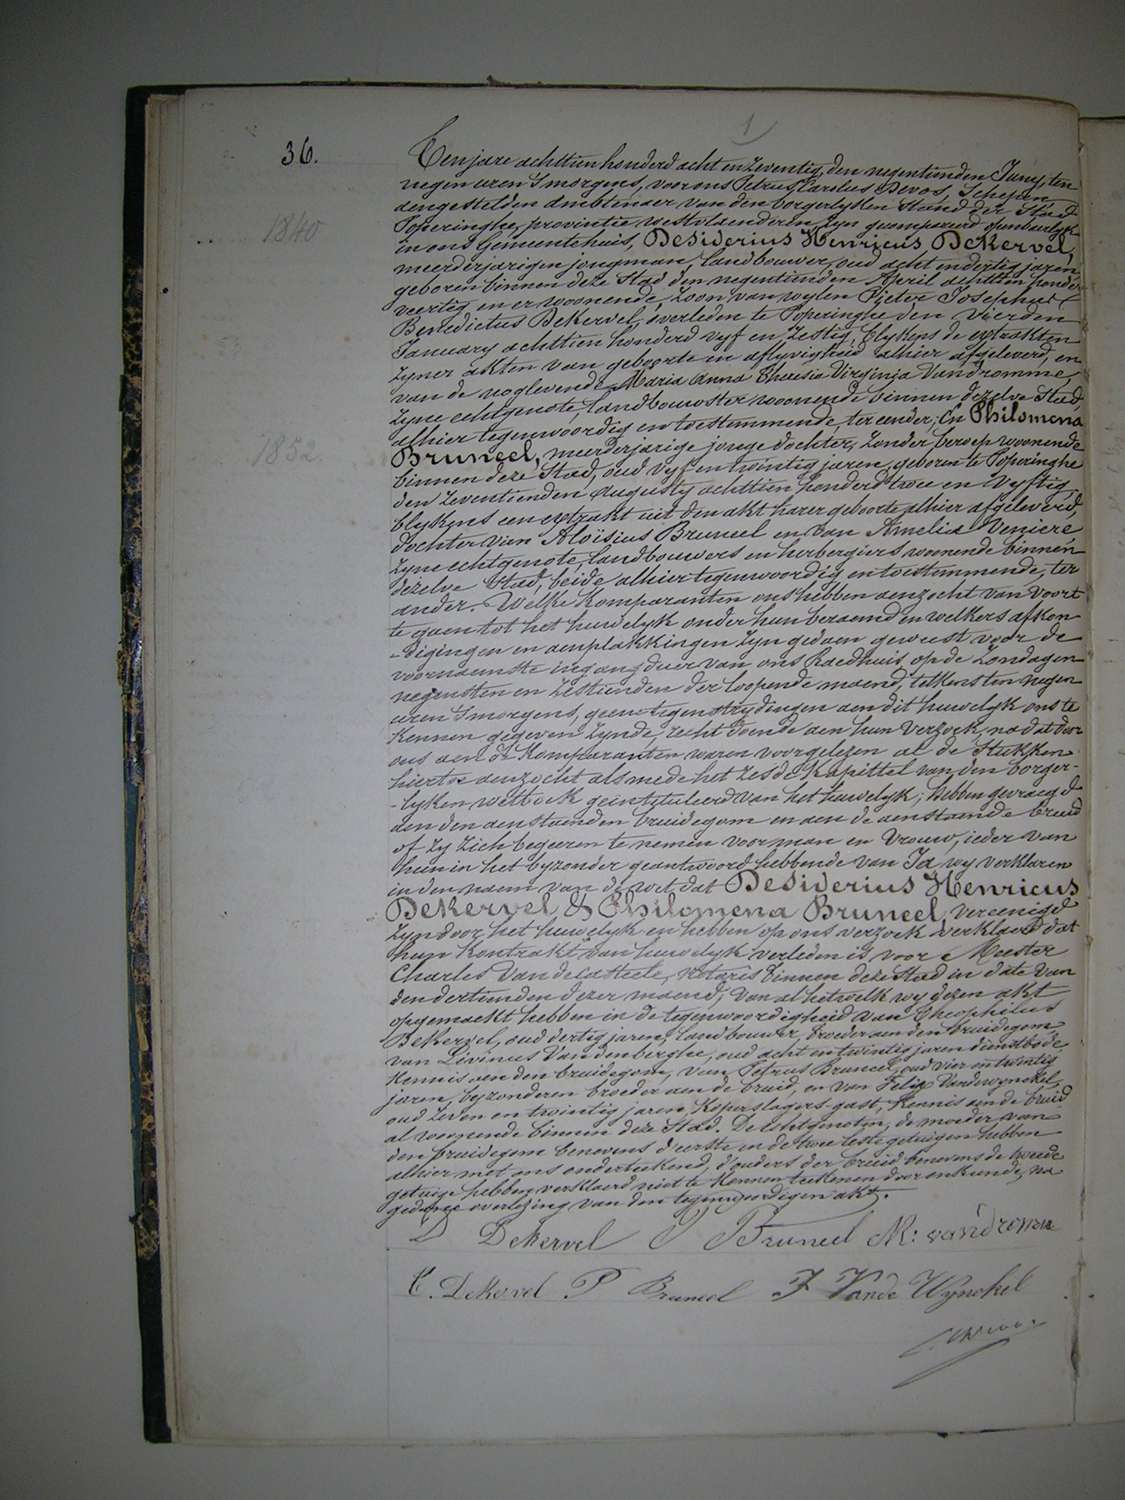 1
36.
1840
1852.
Ten jare achttien honderd acht en zeventig, den negentienden Juny, ten
negen uren 's morgens, voor ons Petrus Carolus Devos, Schepen
aengestelden ambtenaer van den borgerlyken Stand der Stad
Poperinghe, provintie westvlaenderen, zyn gecompareerd openbaerlyk
in ons Gemeentehuis, Desiderius Henricus Dekervel,
meerderjarigen jongman, landbouwer, oud acht en dertig jaren,
geboren binnen deze Stad den negentienden April achttien honderd
veertig en er woonende, zoon van wylen Pieter Josephus
Benedictus Dekervel, overleden te Poperinghe den vierden
January achttien honderd vyf en zestig, blykens de extrakten
zyner akten van geboorte en aflyvigheid alhier afgeleverd, en
van de noglevende Maria Anna Theresia Virginia Vandromme,
zyne echtgenote, landbouwster woonende binnen dezelve Stad,
alhier tegenwoordig en toestemmende, ter eender; En Philomena
Bruneel, meerderjarige jonge dochter, zonder beroep woonende
binnen deze Stad, oud vyf en twintig jaren, geboren te Poperinghe
den zeventienden Augusty achttien honderd twee en vyftig,
blykens een extrakt uit den akt harer geboorte alhier afgeleverd,
dochter van Aloïsius Bruneel en van Amelia Veniere
zyne echtgenote, landbouwers en herbergiers woonende binnen
dezelve Stad, beide alhier tegenwoordig en toestemmende, ter
ander. Welke Komparanten ons hebben aenzocht van voort
te gaen tot het huwelyk onder hun beraemd en welkers afkon
-digingen en aenplakkingen zyn gedaen geweest voor de
voornaemste ingangsduer van ons Raedhuis op de Zondagen
negensten en zestienden der loopende maend, telkens ten negen
uren 's morgens, geene tegenstrydingen aen dit huwelyk ons te
kennen gegeven zynde, recht doende aen hun verzoek, na dat door
ons aen de Komparanten waren voorgelezen al de Stukken
hiertoe aenzocht alsmede het zesde Kapittel van den borger-
-lyken wetboek geïntituleerd van het huwelyk; Hebben gevraegd
aen den aenstaenden bruidegom en aen de aenstaende bruid
of zy zich begeeren te nemen voor man en vrouw, ieder van
hun in het byzonder geantwoord hebbende van Ja, wy verklaren
in den naem van de wet dat Desiderius Henricus
Dekervel & Philomena Bruneel, vereenigd
zyn door het huwelyk en hebben op ons verzoek verklaerd dat
hun Kontrakt van huwelyk verleden is voor Meester
Charles Vandecasteele, notaris binnen deze Stad in date van
den dertienden dezer maend; Van al hetwelk wy dezen akt
opgemaekt hebben in de tegenwoordigheid van Theophilus
Dekervel, oud dertig jaren, landbouwer, broeder aen den bruidegom
van Livinus Vandenberghe, oud acht en twintig jaren dienstbode
kennis aen den bruidegom, van Petrus Bruneel, oud vier en twintig
jaren, byzonderen broeder aen de bruid, en van Felix Vandewynckel
oud zeven en twintig jaren, Koperslagers gast, kennis aen de bruid
al woonende binnen deze Stad. De echtgenoten, de moeder van
den bruidegom benevens d'eerste en de twee leste getuigen hebben
alhier met ons onderteekend, d'ouders der bruid benevens de tweede
getuige hebben verklaerd niet te kunnen teekenen door onkunde, na
gedane overlezing van den tegenwoordigen akt.
D Dekervel P Bruneel M: vandromme
T. Dekervel P Bruneel F Vande Wynckel